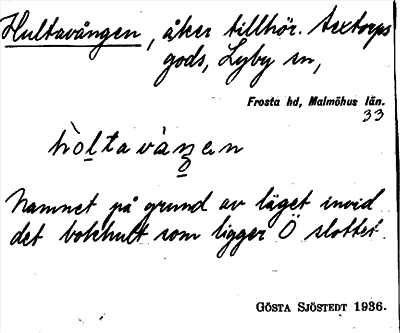 Hultavången, åker tillhör. Axtorps
gods, Lyby sn,
Frosta hd, Malmöhus län.
33
hòltavàŋen
Namnet på grund av läget invid
det bokhult som ligger Ö slottet.
GÖSTA SJÖSTEDT 1936.